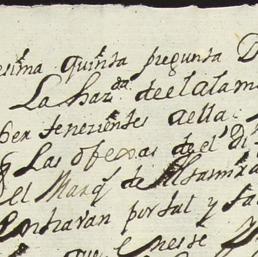 esima quinta pregunta D
La haz.da de el alam
per tenezientes aella
Las ofenas de el d
el Marq.s de Altamira
Entraran por tal y ta
que en ese